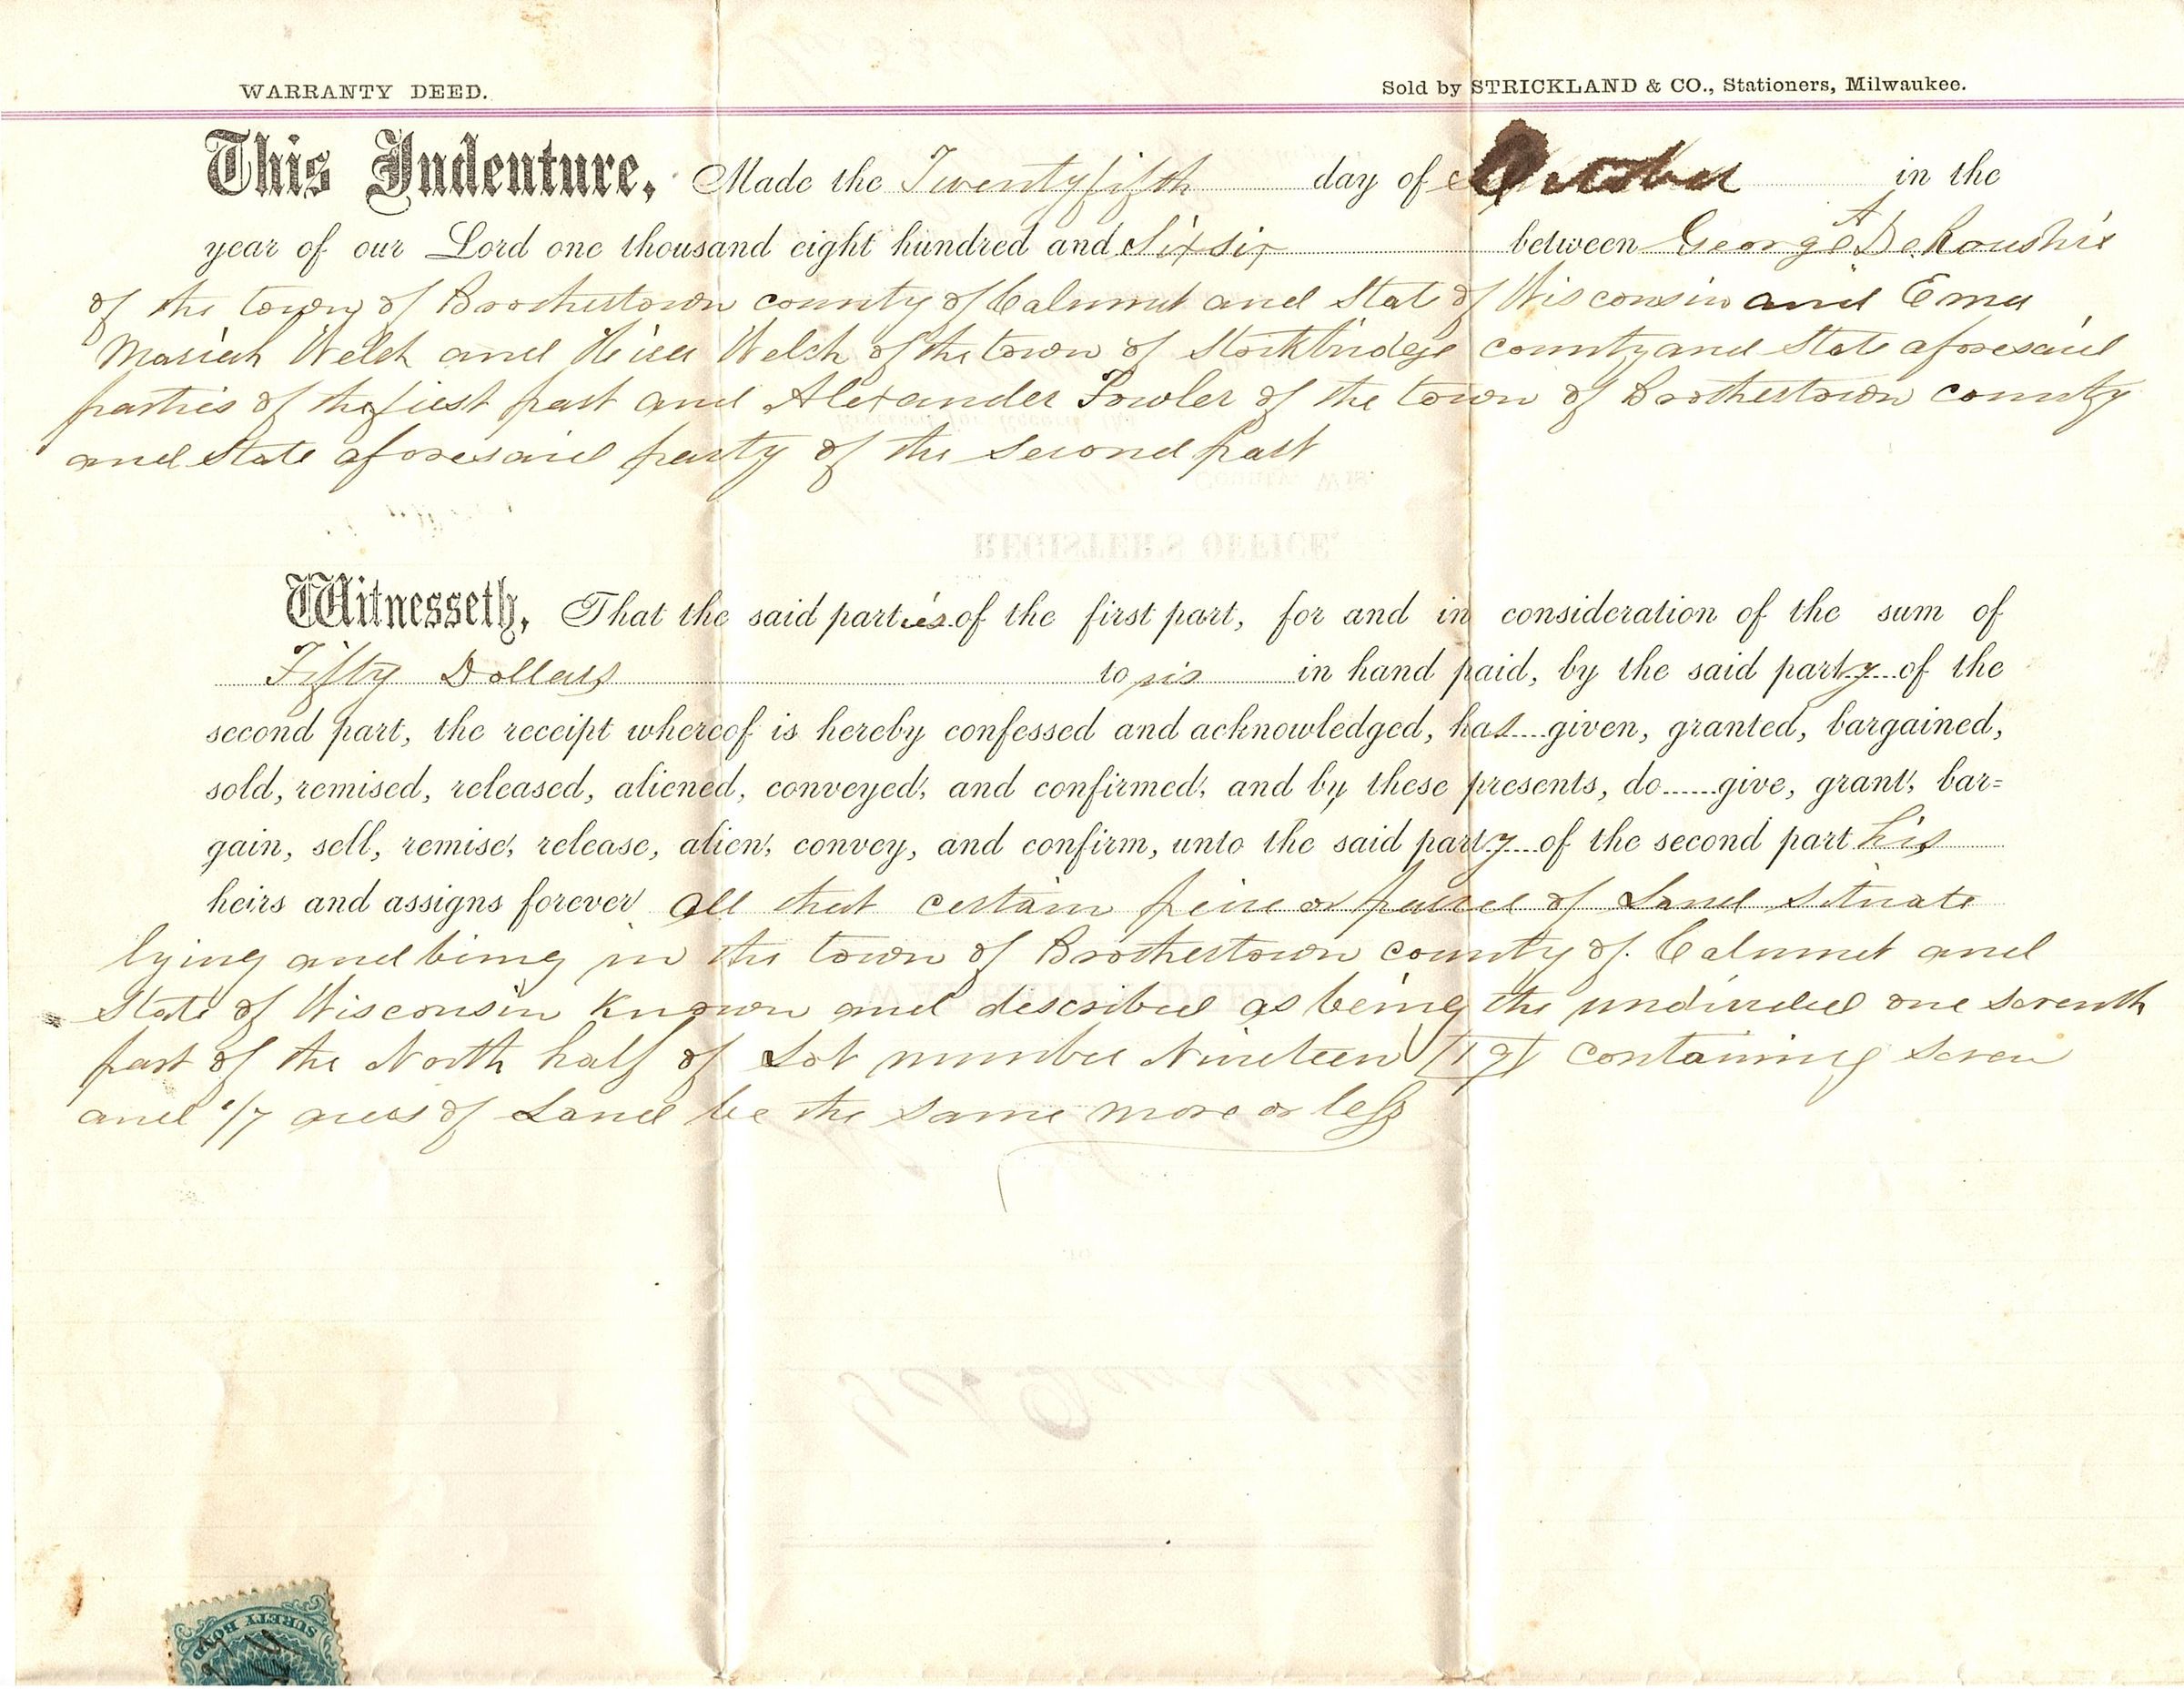 WARRANTY DEED.
Sold by STRICKLAND & CO., Stationers, Milwaukee.
This Indenture, Made the Twentyfifth day of October in the
year of our Lord one thousand eight hundred and Sixsix between George A
of the town of Brothertown county of Calumet and State of Wisconsin and Ema
Mariah Welch and Welch of the town of Stockbridge county and State aforesaid
parties of the first part and Alexander Fowler of the town of Brothertown county
and State aforesaid party of the second part
REGISTER'S OFFICE
Witnesseth, That the said parties of the first part, for and in consideration of the sum of
Fifty Dollars to us in hand paid, by the said party of the
second part, the receipt whereof is hereby confessed and acknowledged, has given, granted, bargained,
sold, remised, released, aliened, conveyed, and confirmed, and by these presents, do give, grant, bar=
gain, sell, remise, release, alien, convey, and confirm, unto the said party of the second part his
heirs and assigns forever all that certain peice or parcel of Land Situate
lying and being in the town of Brothertown county of Calumet and
State of Wisconsin Known and described as being the undivided one seventh
part of the North half of Lot number Nineteen [19] containing seven
and 1/7 acres of Land be the same more or less
SURETY BOND